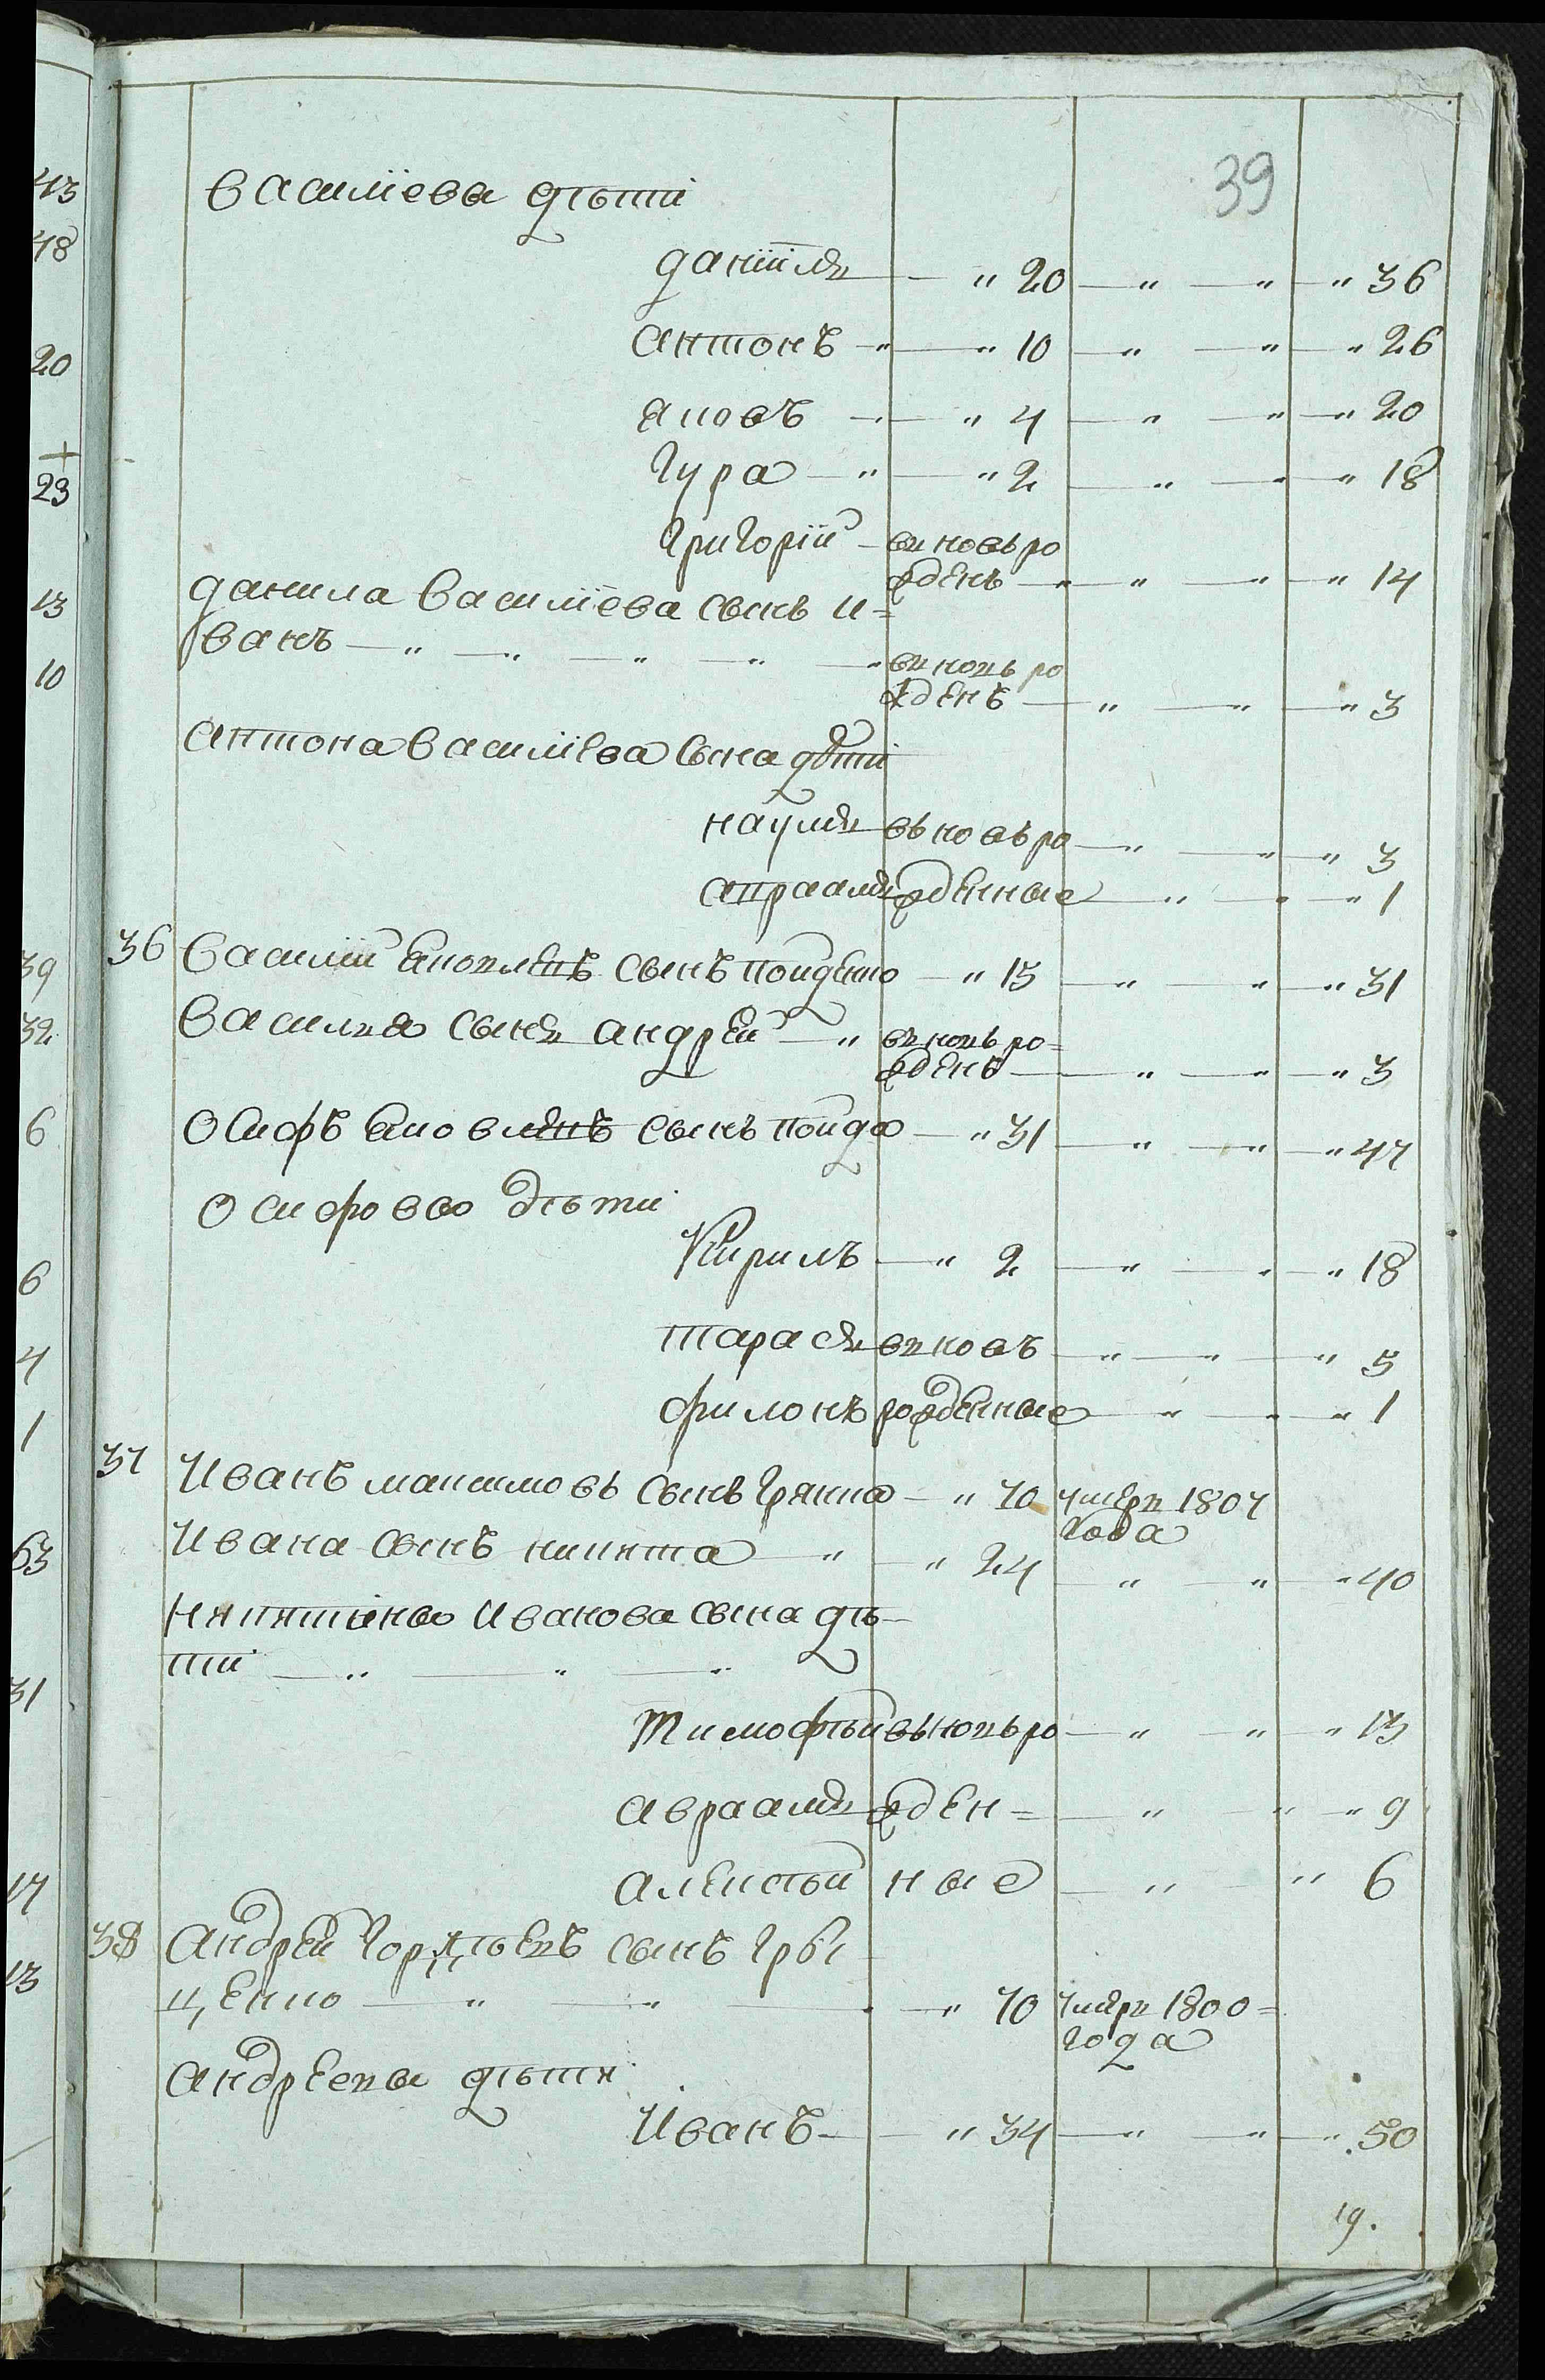 39
Василїевы дѣти
данїилъ — " 20 — " — " — " 36
антонъ — " — " 10 — " — " — " 26
яковъ — " 4 — " — " — " 20
Гура — " — " 2 — " — " — " 18
Григорїй — вновь ро
жденъ — " — " — " — " 14
данила Василїева сынъ и=
ванъ — " — " — " — " — " вновь ро
жденъ — " — " — " 3
антона Василїева сына дѣти
наумъ вновь ро — " — " — " 3
авраамъ жденные — " — " — " 1
36 Василїй яковлевъ сынъ пойденко — " 15 — " — " — " 31
Василья сынъ андрей — " вновь ро=
жденъ — " — " — " 3
Осифъ яковлевъ сынъ пойда — " 31 — " — " — " 47
Осифовы дѣти
Кирилъ — " 2 — " — " — " 18
тарасъ вновъ — " — " — " 5
филонъ рожденные — " — " — " 1
37 Иванъ максимовъ сынъ Грякка — " 70 умеръ 1807
года
Ивана сынъ никита — " — " 24 — " — " — " 40
Никитины Иванова сына дѣ-
ти — " — " — "
Тимофѣй вновь ро — " — " — " 13
авраамъ жден= — " — " — " 9
алексѣй ные — " — " 6
38 андрей Гордѣевъ сынъ Гры
ценко — " — " — " — " 70 умеръ 1800=
года
андреевы дѣти
Иванъ — " 34 — " — " — " 50
19.
43
48
20
23
13
10
39
32
6
6
4
1
63
31
17
13